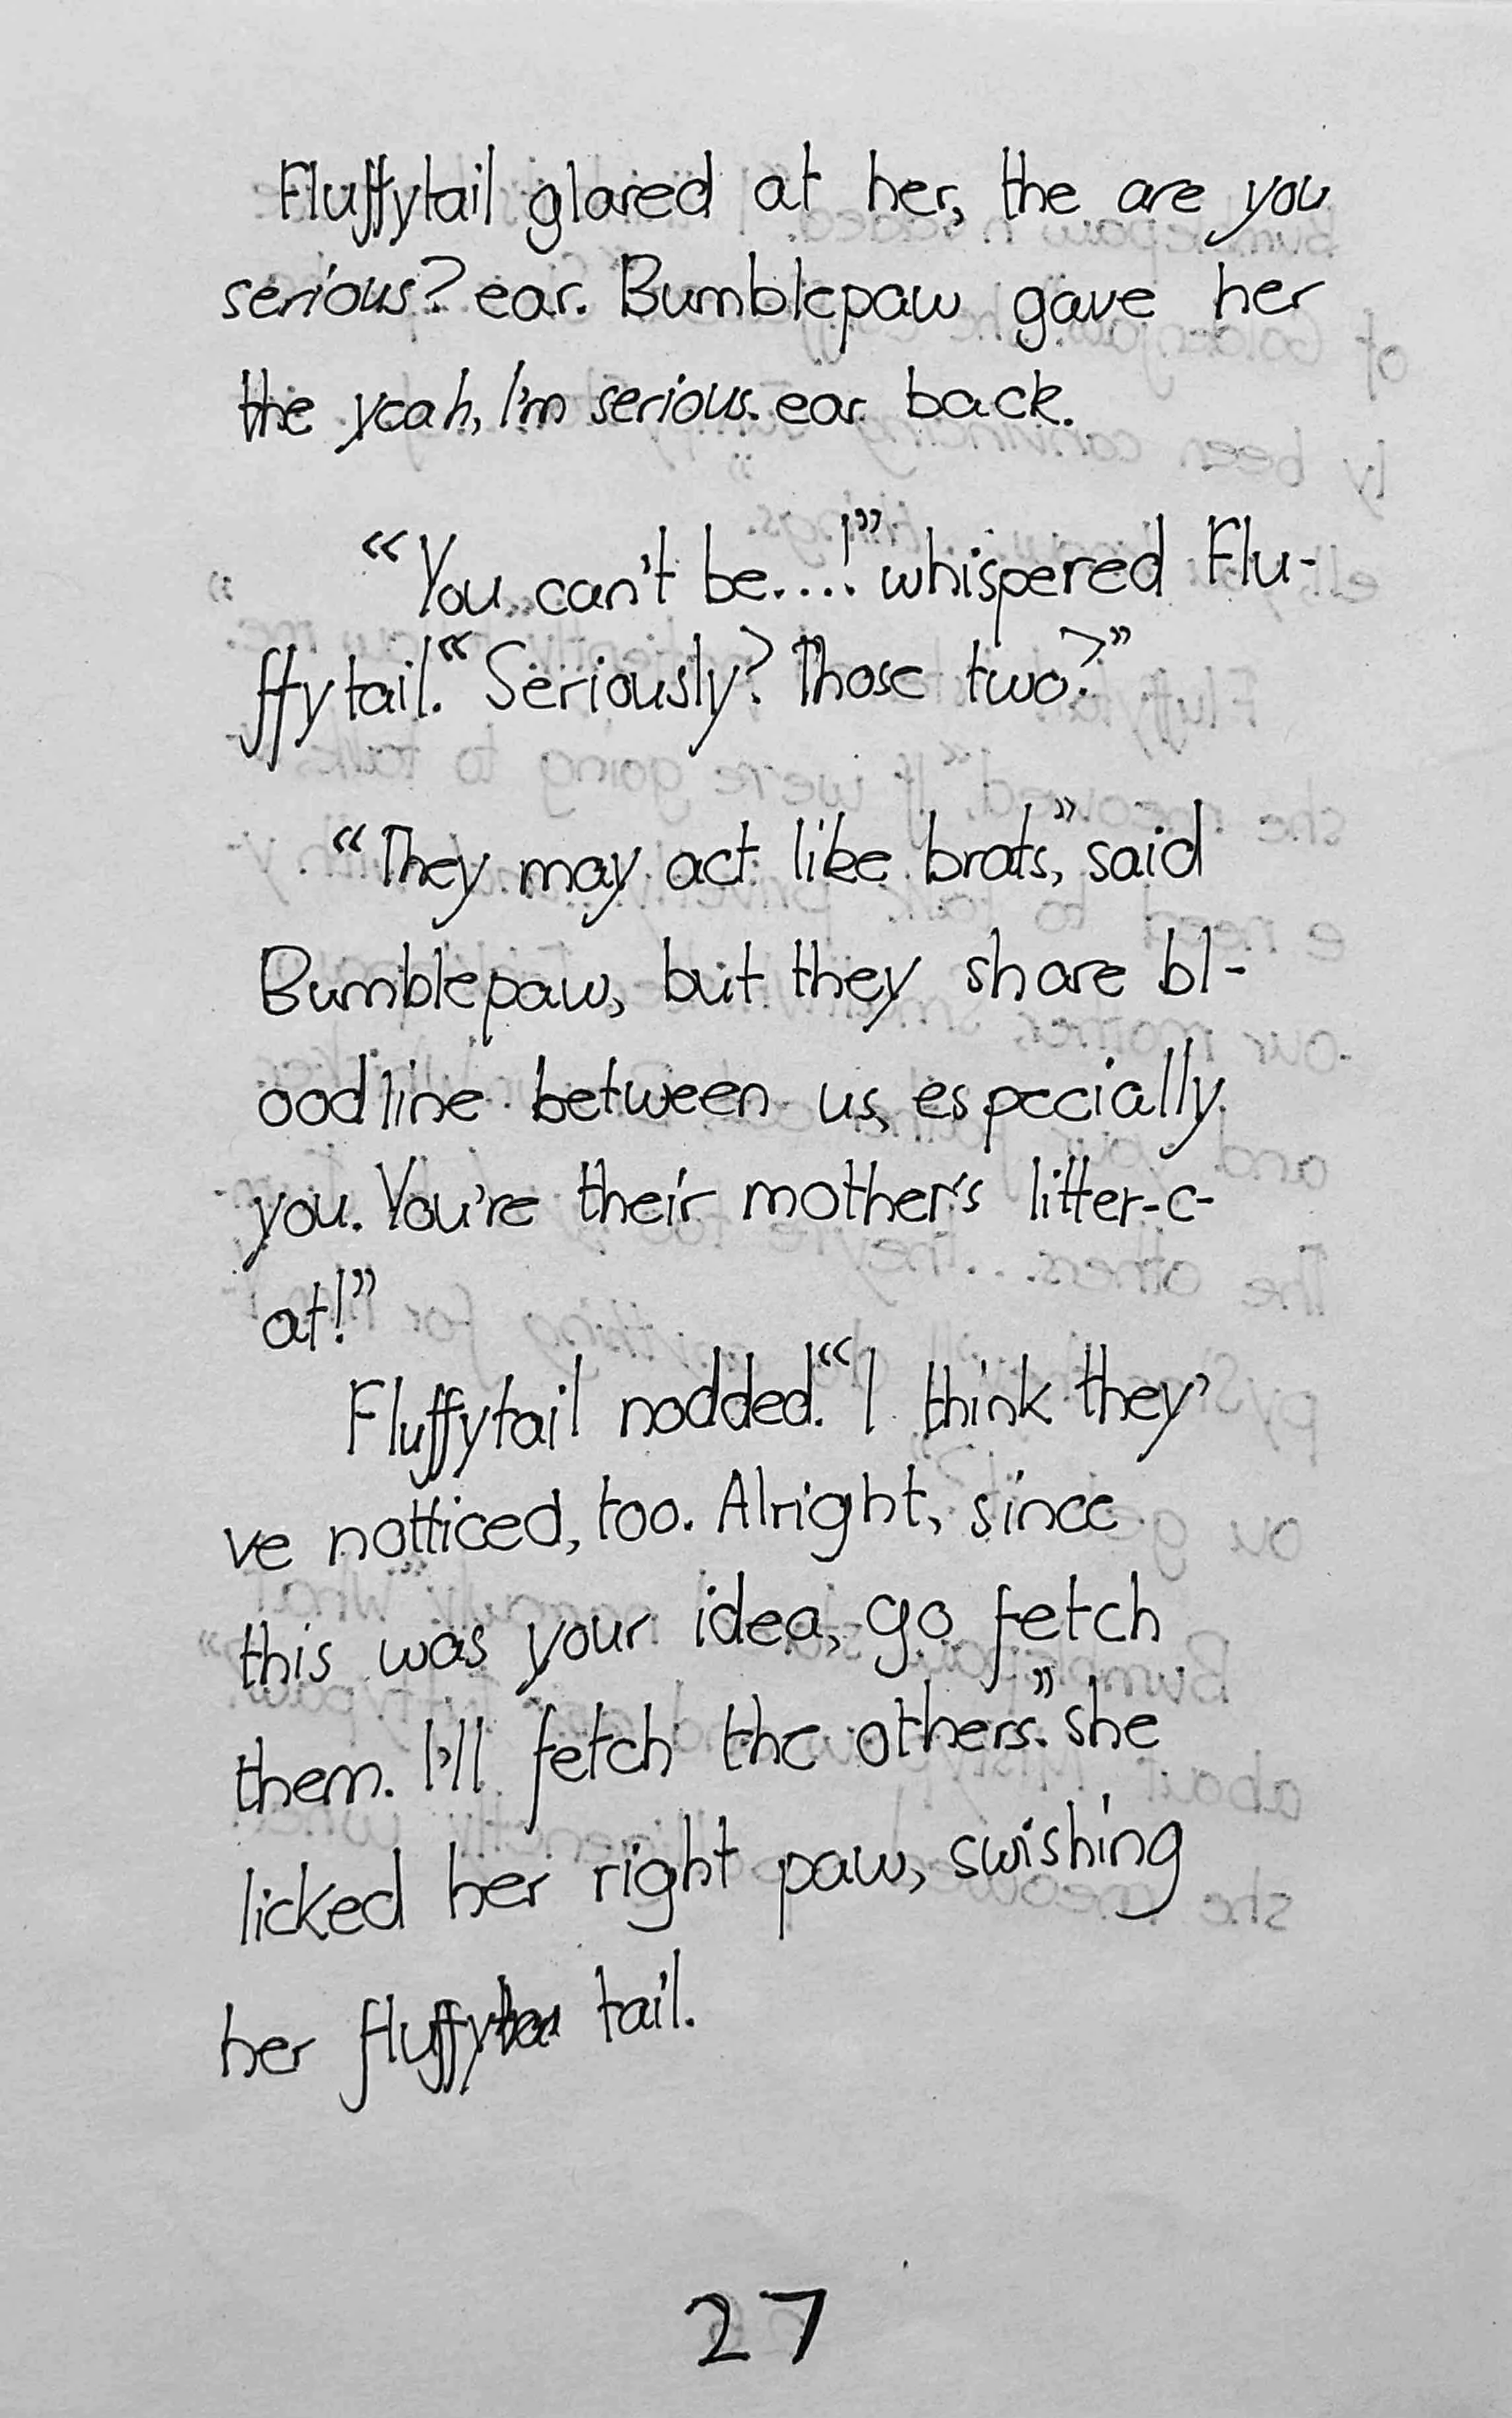 Fluffytail glared at her, the are you
serious? ear. Bumblepaw gave her
the yeah, I'm serious. ear back.
"You can't be....!" whispered Flu-
ffytail. "Seriously? Those two?"
"They may act like brats," said
Bumblepaw, but they share bl-
oodline between us, especially
you. You're their mother's litter-c-
at!"
Fluffytail nodded. "I think they'
ve notticed, too. Alright, since
this was your idea, go fetch
them. I'll fetch the others." she
licked her right paw, swishing
her fluffy tail.
27